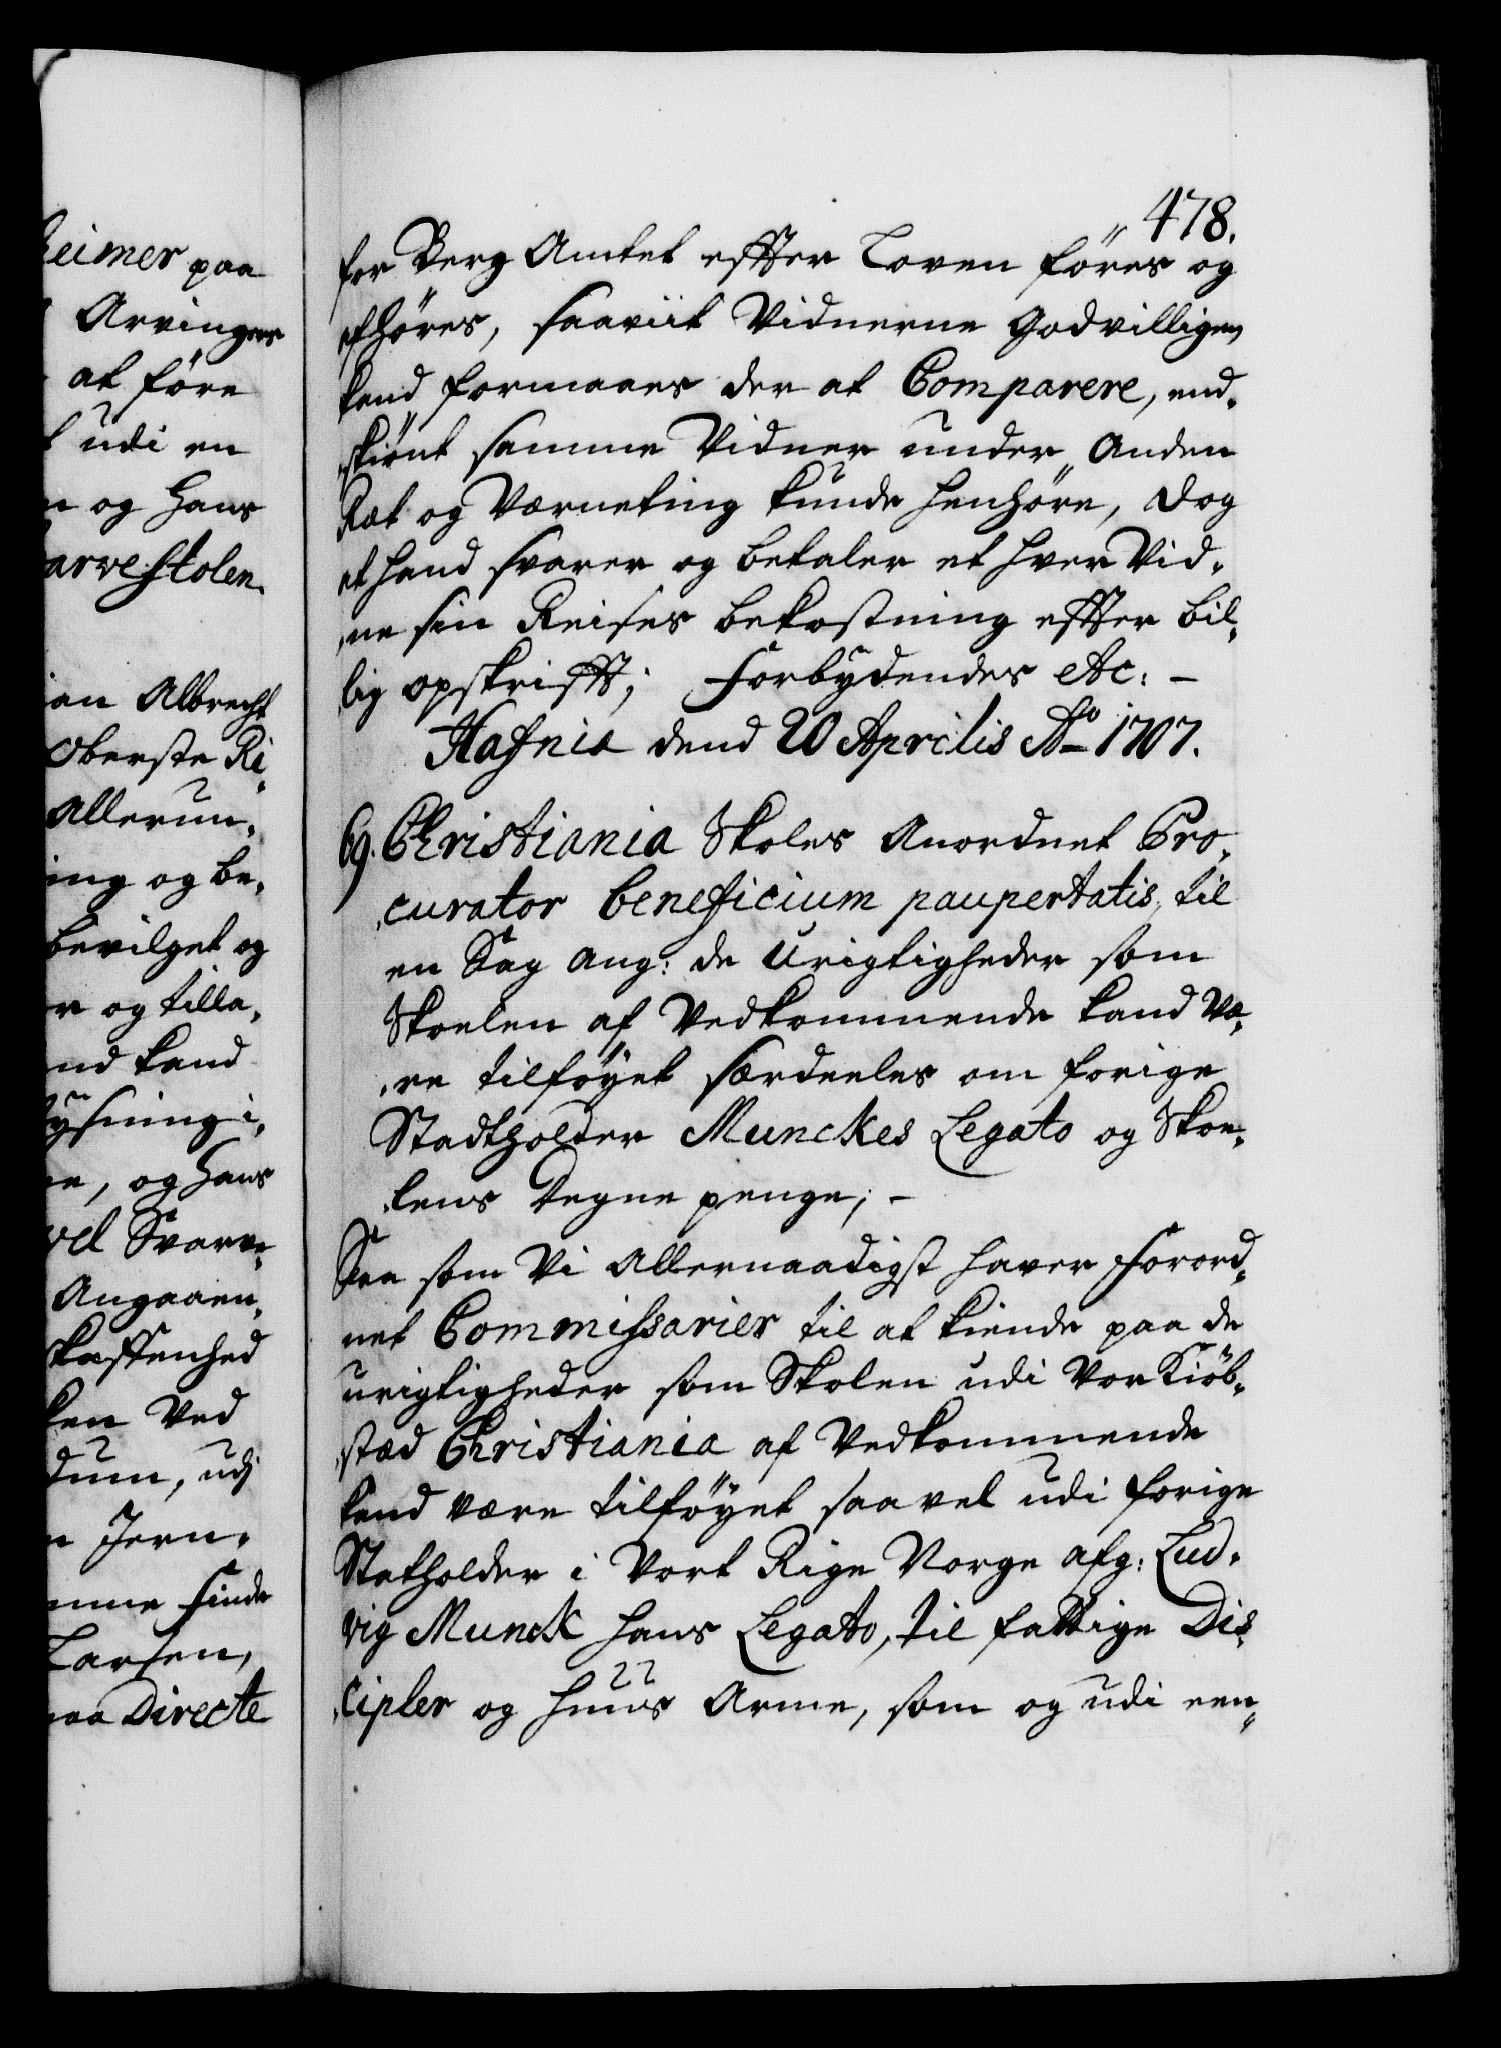 eimer paa
Arvinger
at føre
udi en
og Hans
arvestolen.
ian Albrecht
Oberste Ri„
Allerun„
ing og be„
bevilget og
r og tilla„
nd kand
ysning i„
e, og Hans
vel Svarve„
Angaaen„
skaffenhed
ken Ved
dum, udj
Jern„
mme finde
Larsen,
paa Directe
478.
for Berg Amtet effter Loven føres og
afhøres, saaviit Vidnerne Godvilligen
kand formaaes der at Comparere, end„
„skiønt samme Vidner under Anden
Ræt og Værneting kunde henhøre, dog
at hand svarer og betaler et hver Vid„
„ne sin Reises bekostning effter bil„
„lig opskrifft; Forbydendes etc: –
Hafnia dend 20 Aprilis Ao 1707.
69. Christiania Skoles Anordnet Pro„
„curator beneficium paupertatis, til
en Sag ang: de Urigtigheder som
Skoelen af Vedkommende kand Væ„
„re tilføyet særdeeles om forige
Stadtholder Munckes Legato og Skoe„
„lens Degne penge; –
Saa som Vi Allernaadigst haver Forord„
net Commissarier til at kiende paa de
urigtigheder som Skolen udi Vor Kiøb„
„stæd Christiania af Vedkommende
kand være tilføyet saavel udi forige
Statholder i Vort Rige Norge afg: Lud„
vig Munck hans Legato, til fattige Dis„
„cipler og Huus Arme, som og udi een„